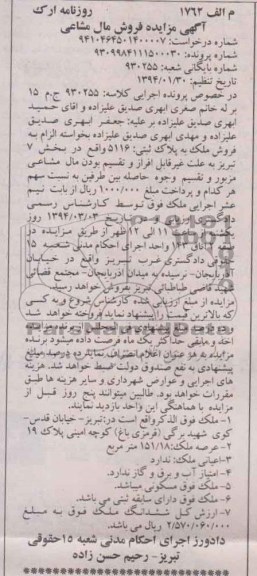 م الف ۱۷۶۲ روزنامه ارک
آگهی مزایده فروش مال مشاعی
شماره درخواست: ۹۴۱۰۴۶۴۵۰۱۴۰۰۰۰۷
شماره پرونده: ۹۳۰۹۹۸۴۱۱۱۵۰۰۰۳۰
شماره بایگانی شعبه: ۹۳۰۲۵۵
تاریخ تنظیم: ۱۳۹۴/۰۱/۳۰
در خصوص پرونده اجرایی کلاسه: ۹۳۰۲۵۵ ج.م ۱۵
بر له خانم صغری ابهری صدیق علیزاده و اقای حمید
ابهری صدیق علیزاده بر علیه: جعفر ابهری صدیق
علیزاده و مهدی ابهری صدیق علیزاده بخواسته الزام به
فروش ملک به پلاک ثبتی: ۵۱۱۶ واقع در بخش ۷
تبریز به علت غیرقابل افراز و تقسیم بودن مال مشاعی
مزبور و تقسیم وجوه حاصله بین طرفین به نسبت سهم
هر کدام و پرداخت مبلغ ۱۰۰۰/۰۰۰ ریال از بابت نیم
عشر اجرایی ملک فوق توسط کارشناس رسمی
دادگستری ارزیابی و در تاریخ ۱۳۹۴/۰۳/۰۳ روز
یکشنبه از ساعت ۱۱ الی ۱۲ ظهر از طریق مزایده در
اتاق ۱۴۳ واحد اجرای احکام مدنی شعبه ۱۵
حقوقی دادگستری غرب تبریز واقع در خیابان
آذربایجان- نرسیده به میدان آذربایجان- مجتمع قضائی
شهید قاضی طباطبائی تبریز بفروش خواهد رسید.
مزایده از مبلغ ارزیابی شده کارشناس شروع و به کسی
که بالاترین قیمت را پیشنهاد نماید فروخته خواهد شد
پیشنهادی فی المجلس از برنده مزایده
اخذ و مابقی حداکثر یک ماه فرصت داده میشود برنده
مزایده به هر عنوان اعلام انصراف نماید ده درصد مبلغ
پیشنهادی به نفع صندوق دولت ضبط خواهد شد. هزینه
های اجرایی و عوارض شهرداری و سایر هزینه ها طبق
مقررات خواهد بود. طالبین میتوانند پنج روز قبل از
مزایده با هماهنگی این واحد بازدید نمایند.
۱- ملک فوق الذکر واقع است در: تبریز- خیابان قدس-
کوی شهید برگی (قرمزی باغ) کوچه امینی پلاک ۱۹
۲- عرصه ملک: ۱۵۱/۱۸ متر مربع
۳- اعیانی ملک: ندارد
۴- امتیاز آب و برق و گاز ندارد.
۵- ملک فوق مسکونی میباشد.
۶- ملک فوق دارای سابقه ثبتی می باشد.
۷- ارزش کل ششدانگ ملک فوق به مبلغ
۲/۵۷۰/۰۶۰/۰۰۰ ریال می باشد.
دادورز اجرای احکام مدنی شعبه ۱۵ حقوقی
تبریز- رحیم حسن زاده